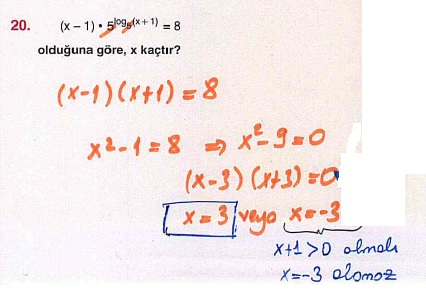 20. (x – 1) • 5^log₅(x + 1) = 8
olduğuna göre, x kaçtır?
(x-1)(x+1) = 8
x²-1 = 8 ⇒ x²-9=0
(x-3)(x+3)=0
x=3 veya x=-3
x+1>0 olmalı
x=-3 olamaz